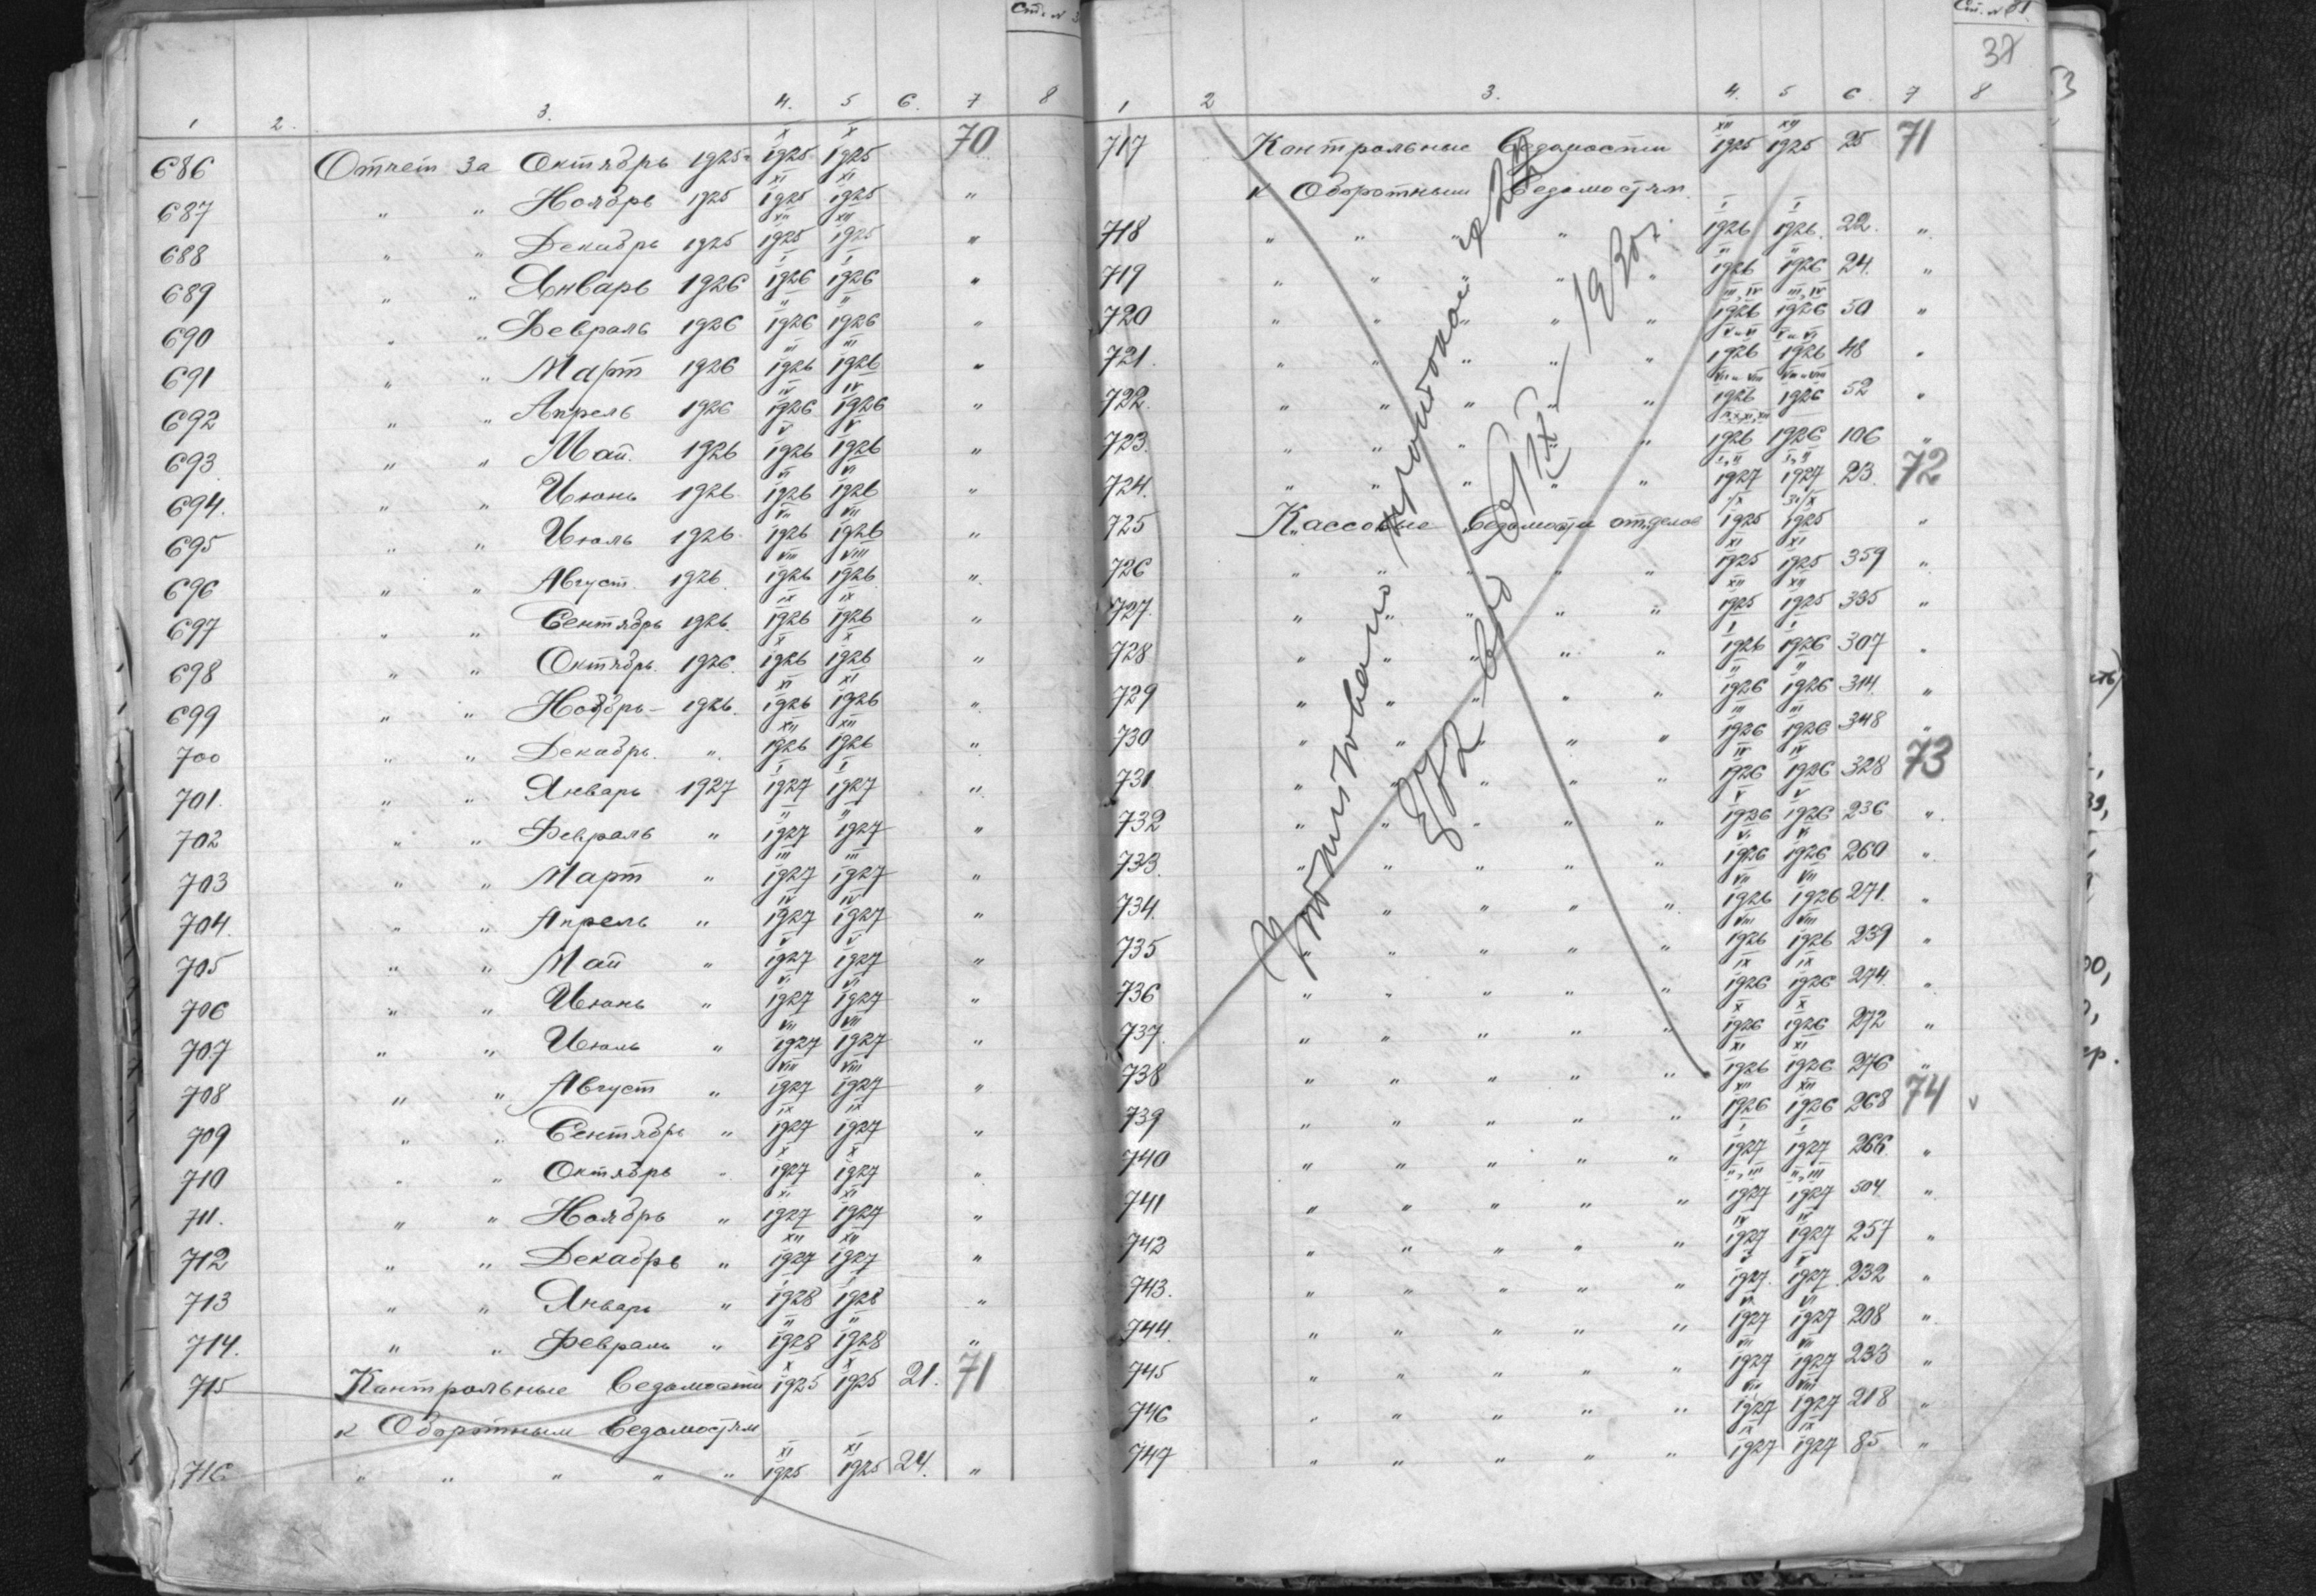 1 2. 3. 4. 5 6. 7 8
686 Отчет за Октябрь 1925г X 1925 X 1925 70
687 " " Ноябрь 1925 XI 1925 XI 1925 "
688 " " Декабрь 1925 XII 1925 XII 1925 "
689 " " Январь 1926 I 1926 I 1926 "
690 " " Февраль 1926 II 1926 II 1926 "
691 " " Март 1926 III 1926 III 1926 "
692 " " Апрель 1926 IV 1926 IV 1926 "
693 " " Май. 1926 V 1926 V 1926 "
694. " " Июнь 1926 VI 1926 VI 1926 "
695 " " Июль 1926. VII 1926 VII 1926 "
696 " " Август. 1926. VIII 1926 VIII 1926 "
697 " " Сентябрь 1926. IX 1926 IX 1926 "
698 " " Октябрь. 1926. X 1926 X 1926 "
699 " " Ноябрь - 1926. XI 1926 XI 1926 "
700 " " Декабрь. " XII 1926 XII 1926 "
701. " " Январь 1927 I 1927 I 1927 "
702 " " Февраль " II 1927 II 1927 "
703 " " Март " III 1927 III 1927 "
704. " " Апрель " IV 1927 IV 1927 "
705 " " Май " V 1927 V 1927 "
706 " " Июнь " VI 1927 VI 1927 "
707 " " Июль " VII 1927 VII 1927 "
708 " " Август " VIII 1927 VIII 1927 "
709 " " Сентябрь " IX 1927 IX 1927 "
710 " " Октябрь " X 1927 X 1927 "
711. " " Ноябрь " XI 1927 XI 1927 "
712 " " Декабрь " XII 1927 XII 1927 "
713 " " Январь " I 1928 I 1928 "
714. " " Февраль " II 1928 II 1928 "
715 Контрольные Ведомости X 1925 X 1925 21. 71
к Оборотным Ведомостям
716 " " " " " XI 1925 XI 1925 24. "
37
1 2 3. 4. 5 6. 7 8
717 Контрольные Ведомости XII 1925 XII 1925 25 71
к Оборотным Ведомостям.
718 " " " " " I 1926 I 1926. 22. "
719 " " " " " II 1926 II 1926 24. "
720 " " " " " III, IV 1926 III, IV 1926 50 "
721. " " " " " V и VI 1926 V и VI 1926 48 "
722. " " " " " VII и VIII 1926 VII и VIII 1926 52 "
723. " " " " " IX, X, XI, XII 1926 1926 106 "
724. " " " " " I, II 1927 I, II 1927 23. 72
725 Кассовые Ведомости отделов 1/X 1925 31/X 1925 "
726 " " " " " XI 1925 XI 1925 359 "
727. " " " " " XII 1925 XII 1925 335 "
728 " " " " " I 1926 I 1926 307 "
729 " " " " " II 1926 II 1926 314. "
730 " " " " " III 1926 III 1926 348 "
731 " " " " " IV 1926 IV 1926 328 73
732 " " " " " V 1926 V 1926 236 "
733. " " " " " VI 1926 VI 1926 260 "
734. " " " " VII 1926 VII 1926 271. "
735 " " " " " VIII 1926 VIII 1926 239 "
736 " " " " " IX 1926 IX 1926 274. "
737. " " " " " X 1926 X 1926 272 "
738 " " " " " XI 1926 XI 1926 276 "
739 " " " " " XII 1926 XII 1926 268 74 v
740 " " " " " I 1927 I 1927 266. "
741 " " " " " II, III 1927 II, III 1927 504. "
742 " " " " " IV 1927 IV 1927 257 "
743. " " " " " V 1927. V 1927. 232 "
744. " " " " " VI 1927 VI 1927 208 "
745 " " " " " VII 1927 VII 1927 233 "
746 " " " " " VIII 1927 VIII 1927 218 "
747 " " " " " IX 1927 IX 1927 85 "
протокол
1930г.